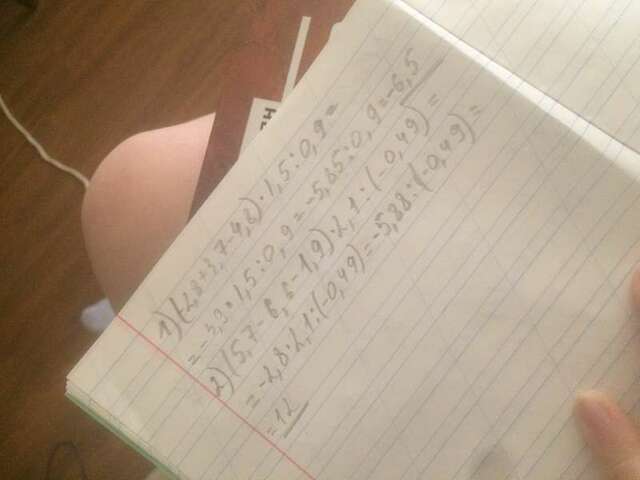 1) (-2,8+3,7-4,8)·1,5:0,9=
=-3,9·1,5:0,9=-5,85:0,9=-6,5
2) (5,7-6,6-1,9)·2,1:(-0,49)=
=-2,8·2,1:(-0,49)=-5,88:(-0,49)=
=12